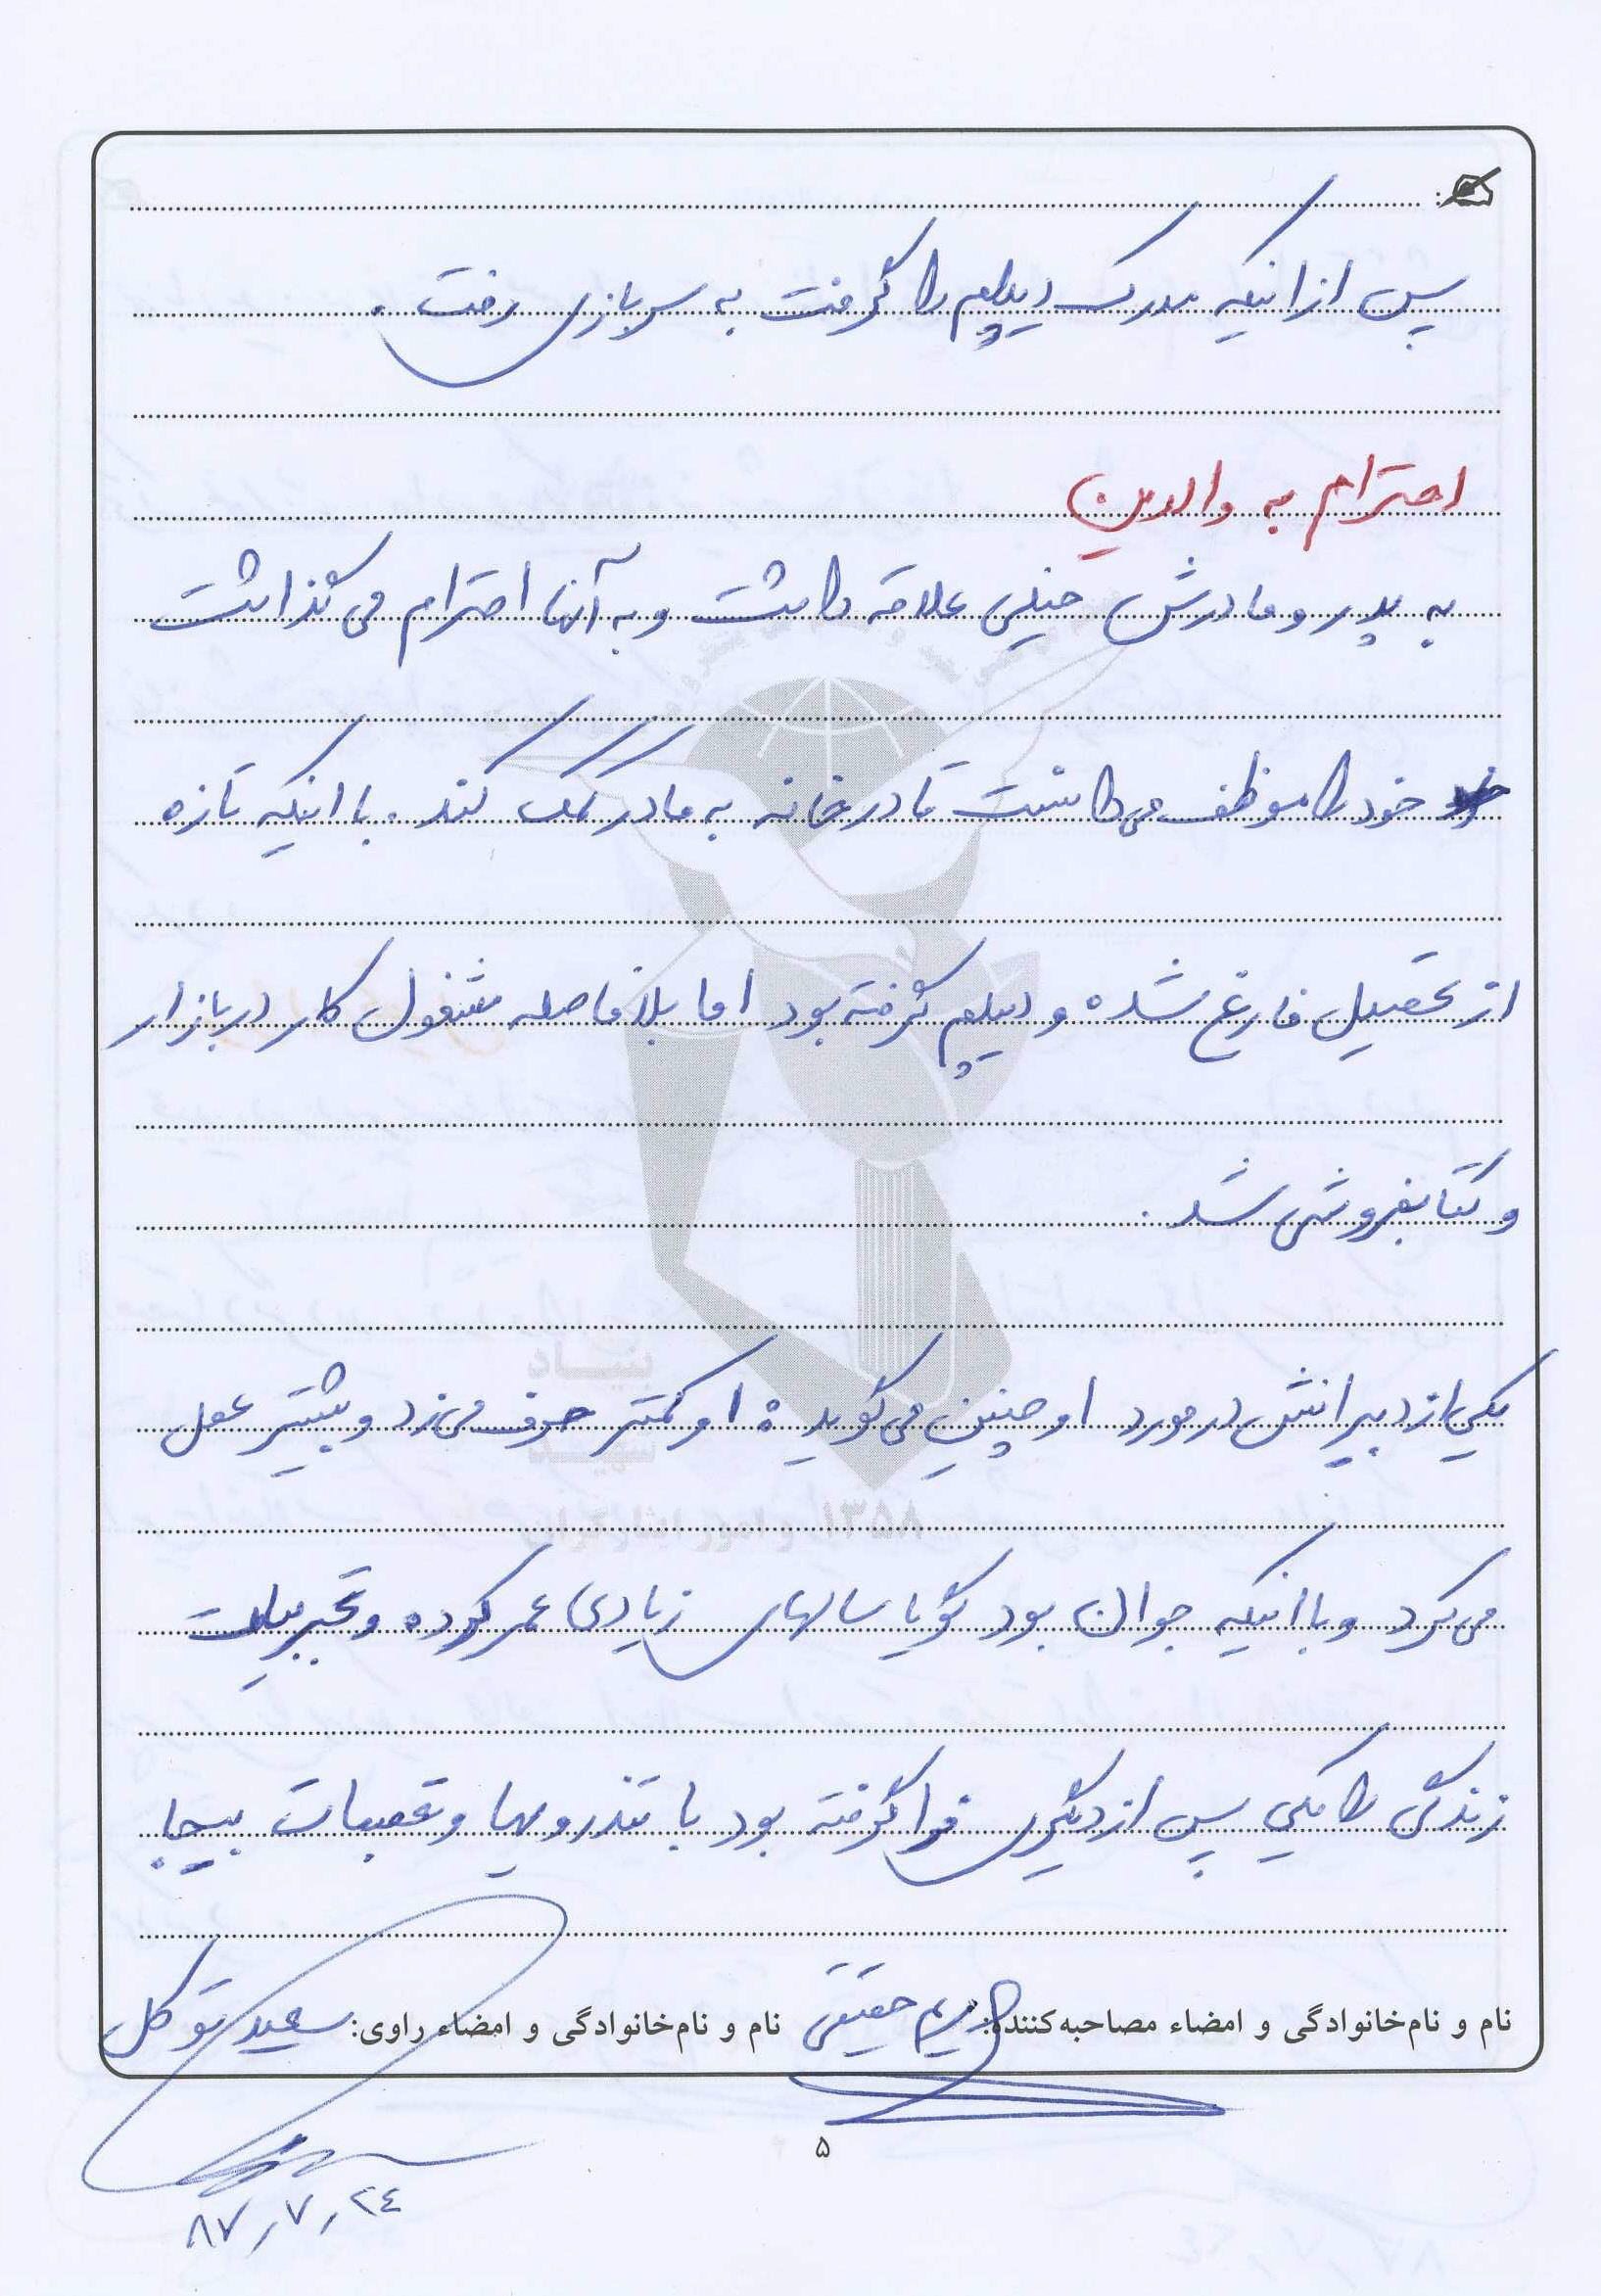 پس از اینکه مدرک دیپلم را گرفت به سربازی رفت.
احترام به والدین
به پدر و مادرش خیلی علاقه داشت و به آنها احترام می گذاشت
خود را موظف می دانست تا در خانه به مادر کمک کند. با اینکه تازه
از تحصیل فارغ شده و دیپلم گرفته بود اما بلافاصله مشغول کار در بازار
و کتابفروشی شد.
یکی از دبیرانش در مورد او چنین می گوید: او کمتر حرف می زد و بیشتر عمل
می کرد و با اینکه جوان بود گویا سالهای زیادی عمر کرده و تجربیات
زندگی را یکی پس از دیگری فرا گرفته بود با تندرویها و تعصبات بیجا
بنیاد
شهید
و امور ایثارگران ۱۳۵۸
نام و نام‌خانوادگی و امضاء مصاحبه‌کننده: مریم حقیقی نام و نام‌خانوادگی و امضاء راوی: سعید توکل
۵
۸۷/۷/۲۴